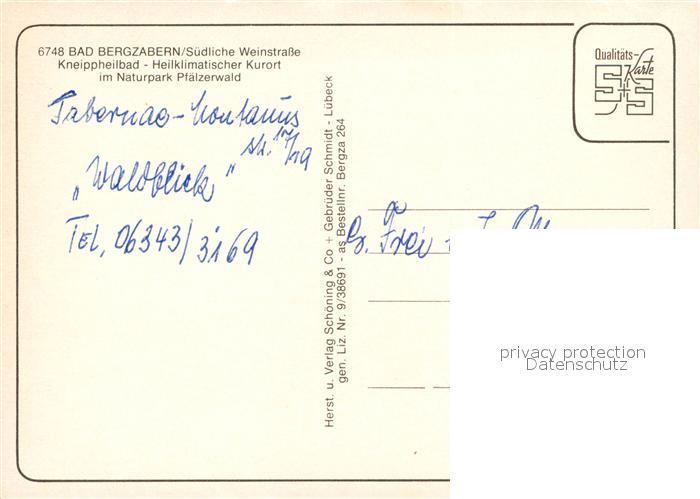 6748 BAD BERGZABERN/Südliche Weinstraße
Kneippheilbad - Heilklimatischer Kurort
im Naturpark Pfälzerwald
Tabernae-Montanus
str. 17/19
„Waldblick“
TEL. 06343/3169
Herst. u. Verlag Schöning & Co + Gebrüder Schmidt - Lübeck
gen. Liz. Nr. 9/38691 - as Bestellnr. Bergza 264
Qualitäts-
Karte
S+S
privacy protection
Datenschutz